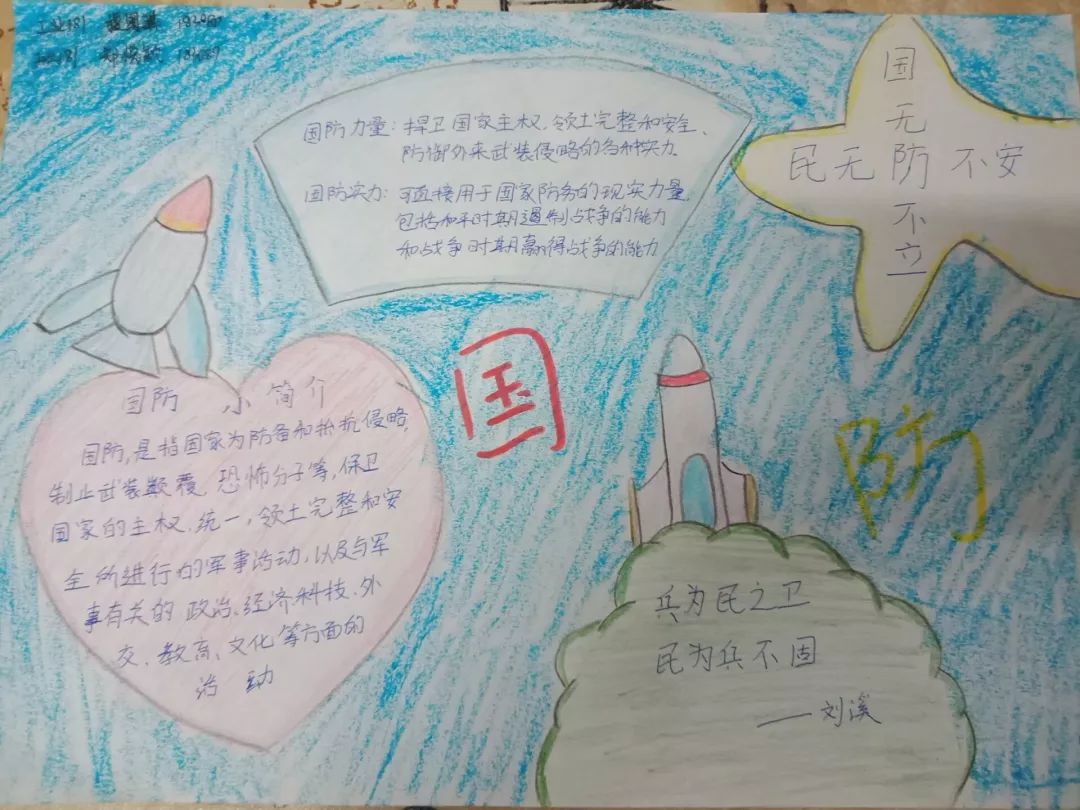 工业181
国防力量：捍卫国家主权、领土完整和安全、
防御外来武装侵略的各种实力。
国防实力：可直接用于国家防务的现实力量，
包括和平时期遏制战争的能力
和战争时期赢得战争的能力
国
无
民无防不安
不
立
国防 小简介
国防，是指国家为防备和抵抗侵略，
制止武装颠覆、恐怖分子等，保卫
国家的主权、统一，领土完整和安
全所进行的军事活动，以及与军
事有关的政治、经济、科技、外
交、教育、文化等方面的
活动
国
防
兵为民之卫
民为兵不固
——刘溪